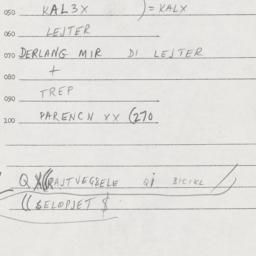 050 KAL3X )= KALX
060 LEJTER
070 DERLANG MIR DI LEJTER
+
080 TREP
090
100 PARENCH XX (270
Q X((RAJTVEGELE QI BICIKL //
((SELOPJET $